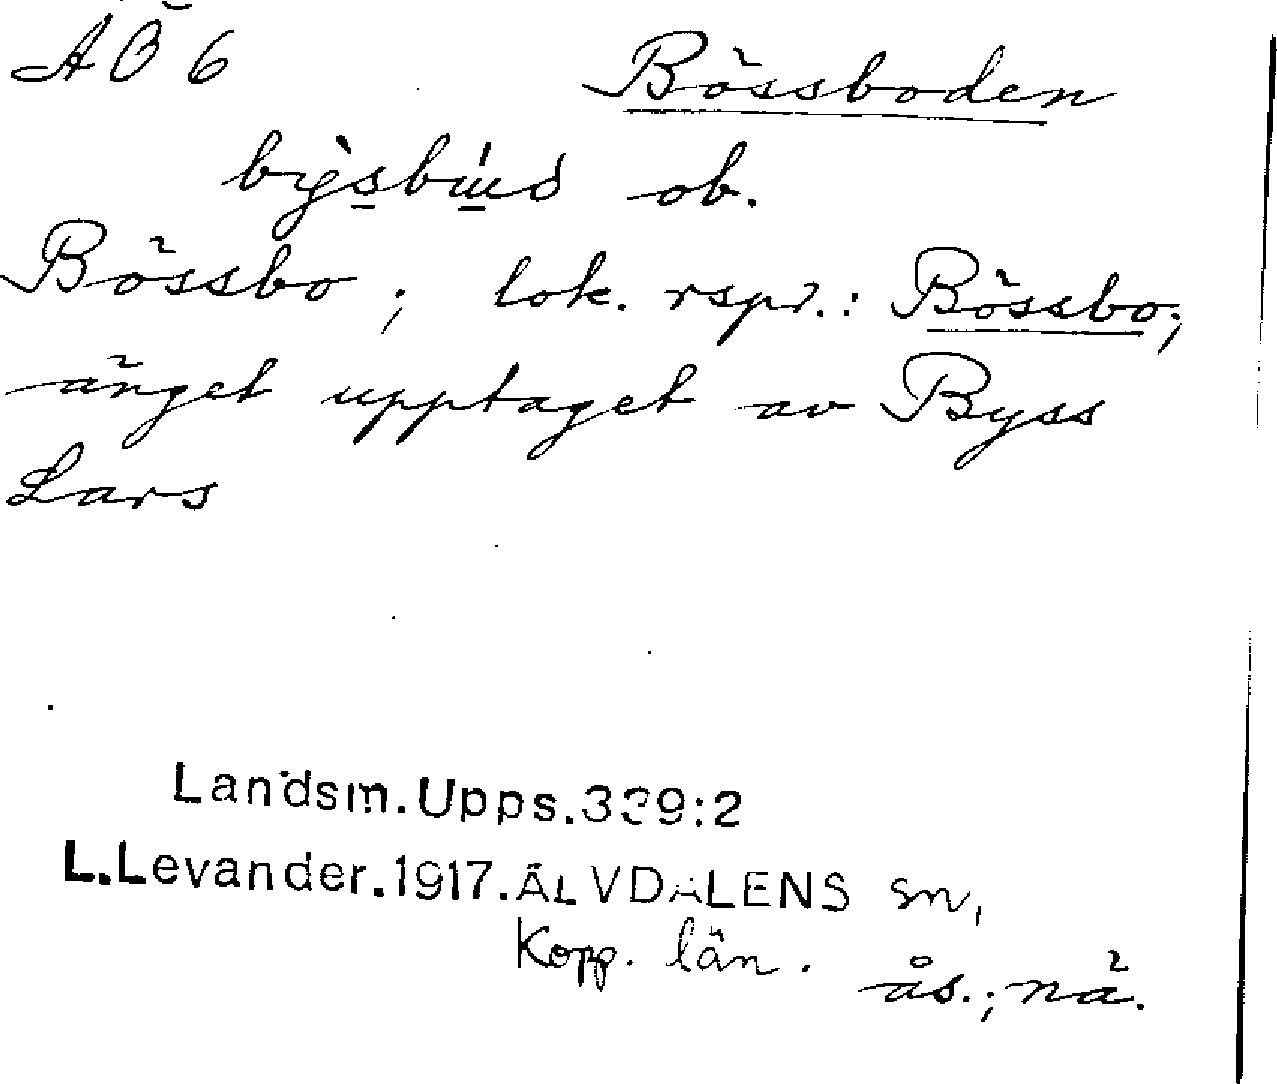 AÖ 6
Bössboden
bỳsbúd ob.
Bössbo ; lok. rspr.: Bössbo;
änget upptaget av Byss
Lars
Landsm.Upps.339:2
L.Levander.1917.ÄLVDALENS sn,
Kopp. län.
ås.; nä.